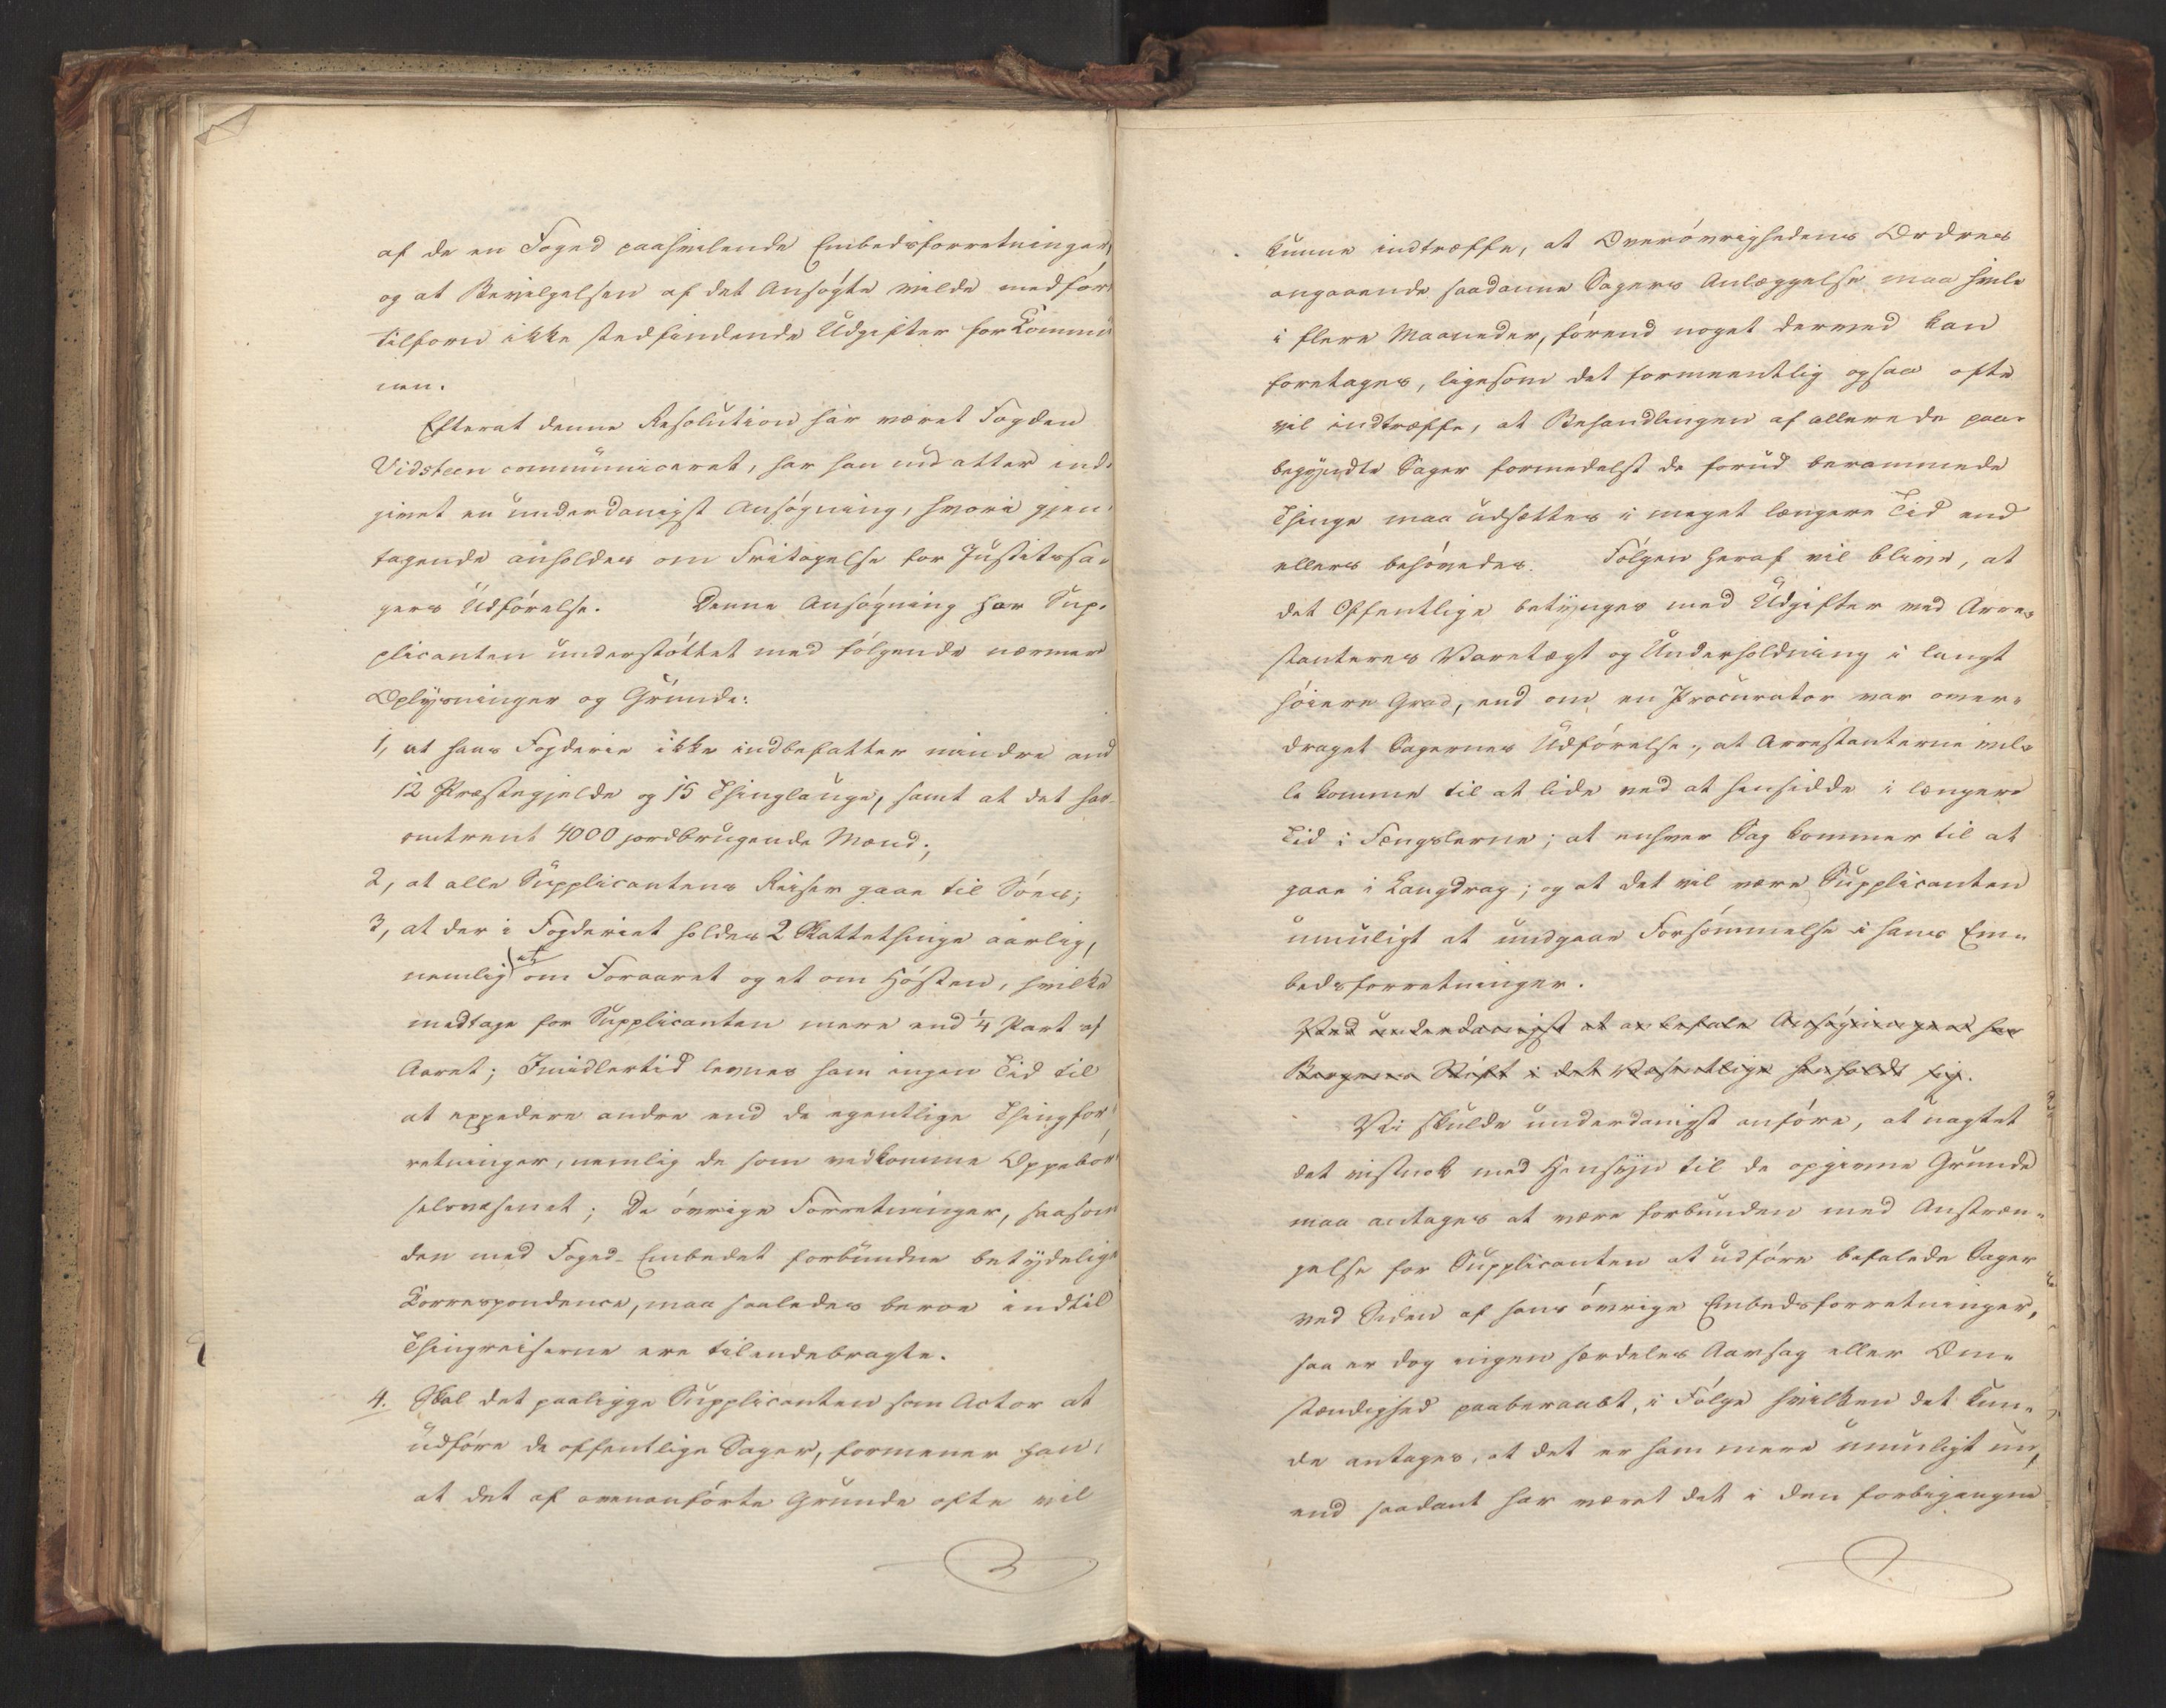 af de en Foged paahvilende Embedsforretninger,
og at Bevilgelsen af det Ansøgte vilde medføre
tilforn ikke stedfindende Udgifter for Kommu-
nen.
Efterat denne Resolution har været Fogden
Vidsteen communiceret, har han nu atter ind-
givet en underdanigst Ansøgning, hvori gjen-
tagende anholdes om Fritagelse for Justitssa-
gers Udførelse. Denne Ansøgning har Sup-
plicanten understøttet med følgende nærmere
Oplysninger og Grunde:
1, at hans Fogderie ikke indbefatter mindre end
12 Præstegjelde og 15 Thinglauge, samt at det har
omtrent 4000 jordbrugende Mænd;
2, at alle Supplicantens Reiser gaae til Søes;
3, at der i Fogderiet holdes 2 Skattethinge aarlig,
nemlig et om Foraaret og et om Høsten, hvilke
medtage for Supplicanten mere end 1/4 Part af
Aaret; Imidlertid levnes ham ingen Tid til
at expedere andre end de egentlige Thingfor-
retninger, nemlig de som vedkomme Oppebør-
selsvæsenet; De øvrige Forretninger, saasom
den med Foged-Embedet forbundne betydelige
Korrespondence, maa saaledes beroe indtil
Thingreiserne ere tilendebragte.
4. Skal det paaligge Supplicanten som Actor at
udføre de offentlige Sager, formener han,
at det af ovenanførte Grunde ofte vil
kunne indtræffe, at Overøvrighedens Ordres
angaaende saadanne Sagers Anlæggelse maa hvile
i flere Maaneder, førend noget dermed kan
foretages, ligesom det formeentlig ogsaa ofte
vil indtræffe, at Behandlingen af allerede paa-
begyndte Sager formedelst de forud berammede
Thinge maa udsættes i meget længere Tid end
ellers behøvedes. Følgen heraf vil blive, at
det Offentlige betynges med Udgifter ved Arre-
stanternes Varetægt og Underholdning i langt
høiere Grad, end om en Procurator var over-
draget Sagernes Udførelse, at Arrestanterne vil-
le komme til at lide ved at hensidde i længere
Tid i Fængslerne; at enhver Sag kommer til at
gaae i Langdrag; og at det vil være Supplicanten
umuligt at undgaae Forsømmelse i hans Em-
bedsforretninger.
Ved underdanigst at anbefale Ansøgningen har
Bergens Stift i det Væsentlige henholdt sig.
Vi skulde underdanigst anføre, at uagtet
det vistnok med Hensyn til de opgivne Grunde
maa antages at være forbunden med Anstræn-
gelse for Supplicanten at udføre befalede Sager
ved Siden af hans øvrige Embedsforretninger,
saa er dog ingen særdeles Aarsag eller Om-
stændighed paaberaabt, i Følge hvilken det kun-
de antages, at det er ham mere umuligt nu,
end saadant har været det i den forbigangne